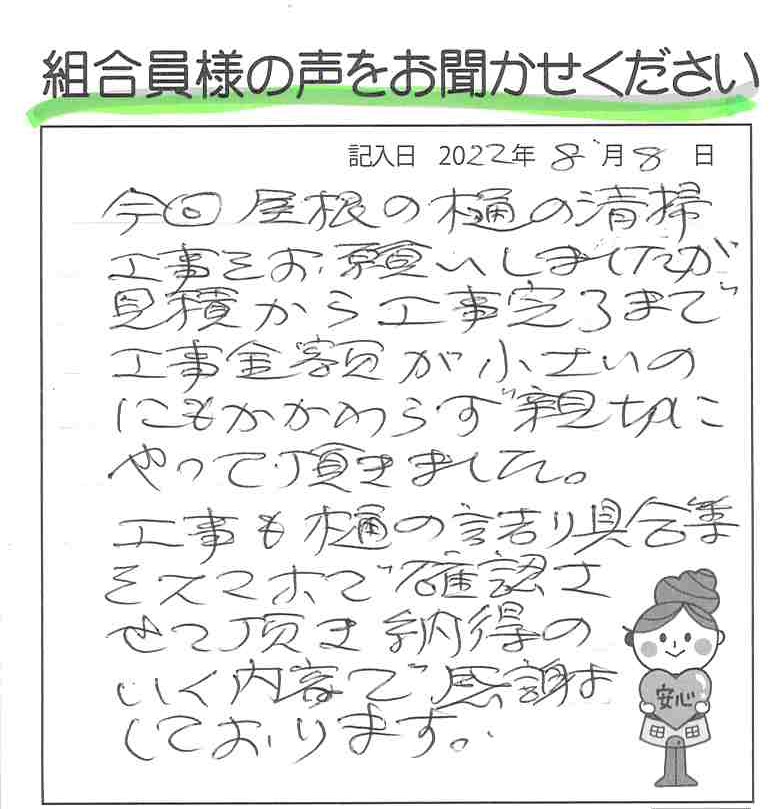 組合員様の声をお聞かせください
記入日 2022年 8月 8 日
今回 屋根の樋の清掃
工事をお願いしましたが
見積から工事完了まで
工事金額が小さいの
にもかかわらず親切に
やって頂きました。
工事も樋の詰り具合等
をスマホで確認さ
せて頂き納得の
いく内容で感謝
しております。
安心